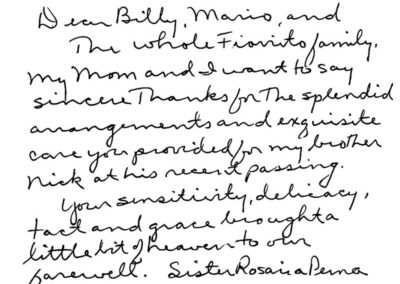 Dear Billy, Mario, and
The whole Fiorito family,
My Mom and I want to say
sincere Thanks for The splendid
arrangements and exquisite
care you provided for my brother
Nick at his recent passing.
Your sensitivity, delicacy,
tact and grace brought a
little bit of heaven to our
farewell. Sister Rosaria Perna